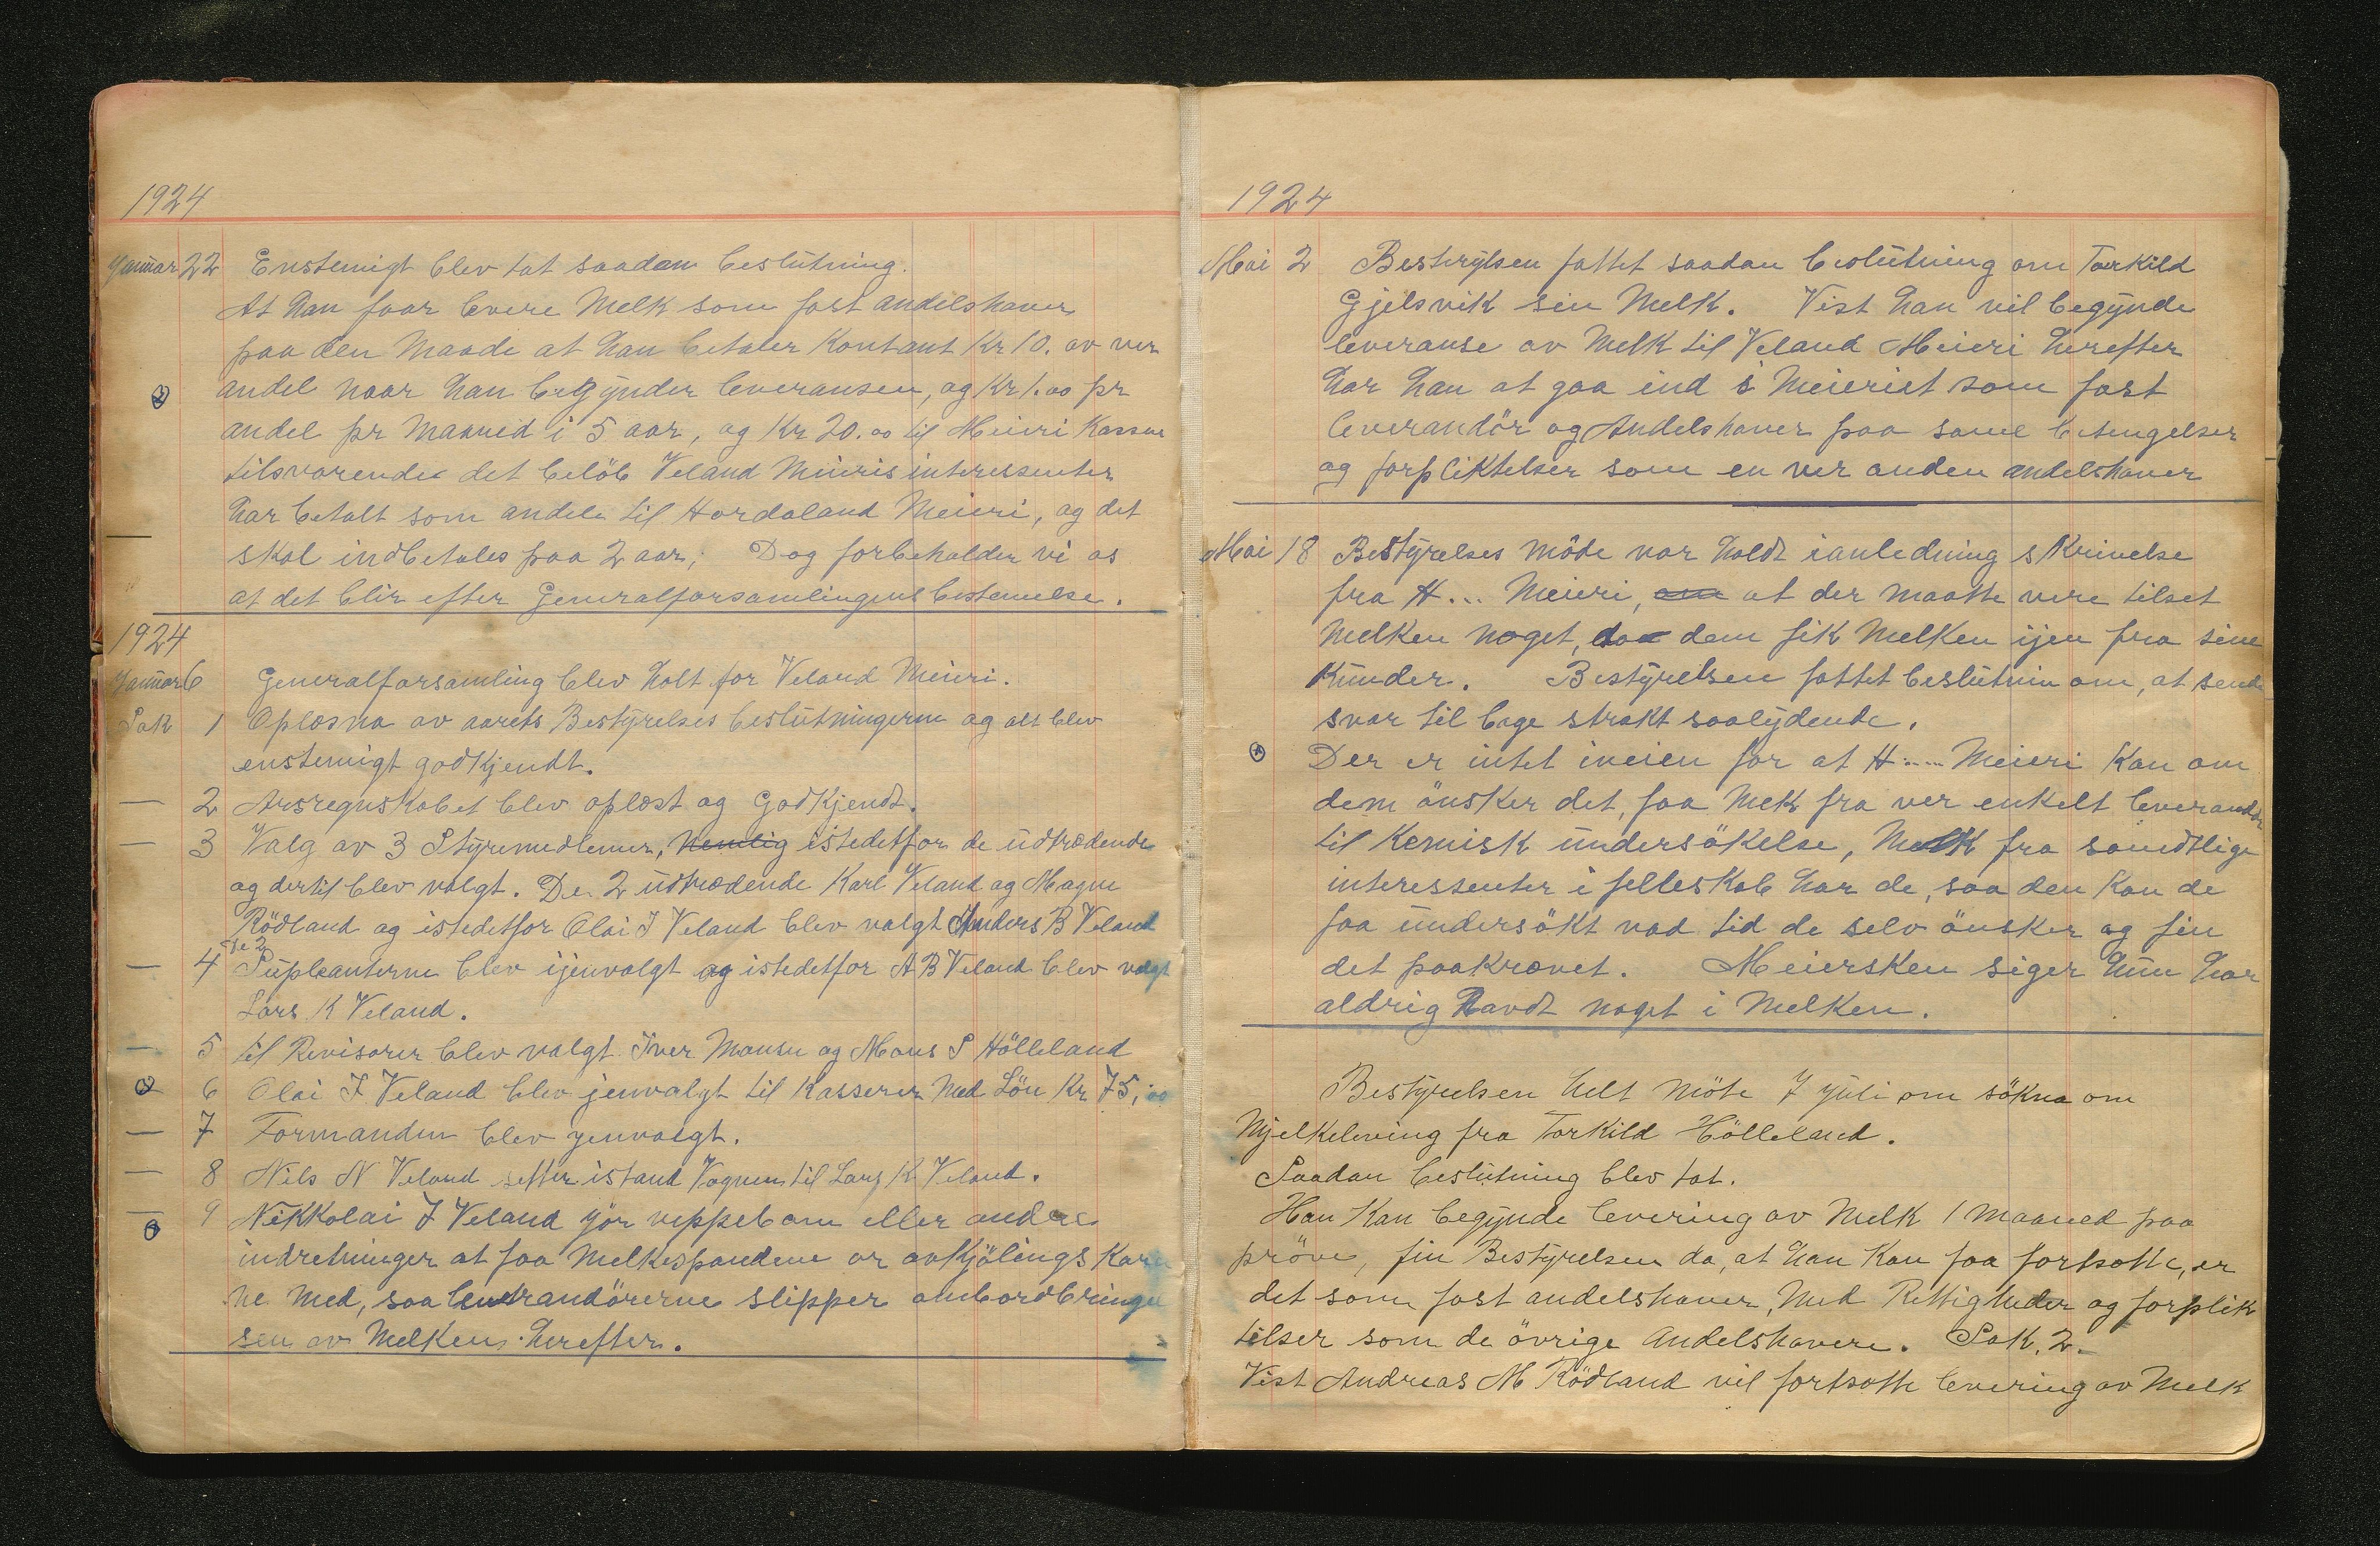 1924
Januar 22 Enstemigt blev tat saadan beslutning.
At han faar levere Melk som fast andelshaver
paa den Maade at han betaler Kontant Kr 10. av ver
andel naar han begynder leveransen, og Kr 1.00 pr
andel pr Maaned i 5 aar, og Kr 20.00 til Meieri Kassen
tilsvarende det belöb Veland Meieris interessenter
har betalt som andele til Hordaland Meieri, og det
skal indbetales paa 2 aar; Dog forbeholder vi os
at det blir efter Generalforsamlingens bestemelse.
1924
Januar 6 Generalforsamling blev holt for Veland Meieri.
Sak 1 Oplæsna av aarets Bestyrelses beslutningerne og alt blev
enstemigt godkjendt.
— 2 Arsregnskabet blev oplæst og Godkjendt.
— 3 Valg av 3 Styremedlemer, Nemlig istedetfor de udtrædende
og dertil blev valgt. De 2 udtrædende Karl Veland og Magne
Rödland og istedetfor Olai J Veland blev valgt Anders B Veland
— 4 De 2 Supleanterne blev ijenvalgt og istedetfor A B Veland blev valgt
Lars K Veland.
— 5 til Revisorer blev valgt Iver Monsen og Mons S Hölleland
— 6 Olai J. Veland blev jenvalgt til Kasserer Med Lön Kr 75,00
— 7 Formanden blev jenvalgt.
— 8 Nils N Veland setter istand Vognen til Lars K Veland.
— 9 Nikkolai J Veland gjör veppebom eller andre
indretninger at faa Melkespandene or avkjölings Kara
ne Med, saa leverandörerne slipper ombordbringel
sen av Melken herefter.
1924
Mai 2 Bestyrlsen fattet saadan beslutning om Torkild
Gjelsvik sin Melk. Vist han vil begynde
leveranse av Melk til Veland Meieri herefter
har han at gaa ind i Meieriet som fast
leverandör og Andelshaver paa same betengelser
og forpliktelser som en ver anden andelshaver
Mai 18 Bestyrelses möde var holdt ianledning skrivelse
fra H... Meieri, om at der maatte vere tilset
Melken noget, da dem fik Melken ijen fra sine
Kunder. Bestyrelsen fattet beslutnin om, at sende
svar til bage strakt saalydende.
Der er intet iveien for at H..... Meieri Kan om
dem önsker det, faa Melk fra ver enkelt leverandör
til Kemisk undersökelse, Melk fra samdtlige
interessenter i felleskab har de, saa den Kan de
faa undersökt vad tid de selv önsker og fin
det paakrævet. Meiersken siger hun har
aldrig havdt noget i Melken.
Bestyrelsen helt möte 7 juli om sökna om
Mjelkelevring fra Torkild Hölleland.
Saadan beslutning blev tat.
Han Kan begynde levering av Melk 1 maaned paa
pröve, fin Bestyrelsen da, at han Kan faa fortsætte, er
det som fast andelshaver, Med Rettigheder og forplik
telser som de övrige Andelshavere. Sak. 2.
Vist Andreas M Rödland vil fortsætte levering av Melk